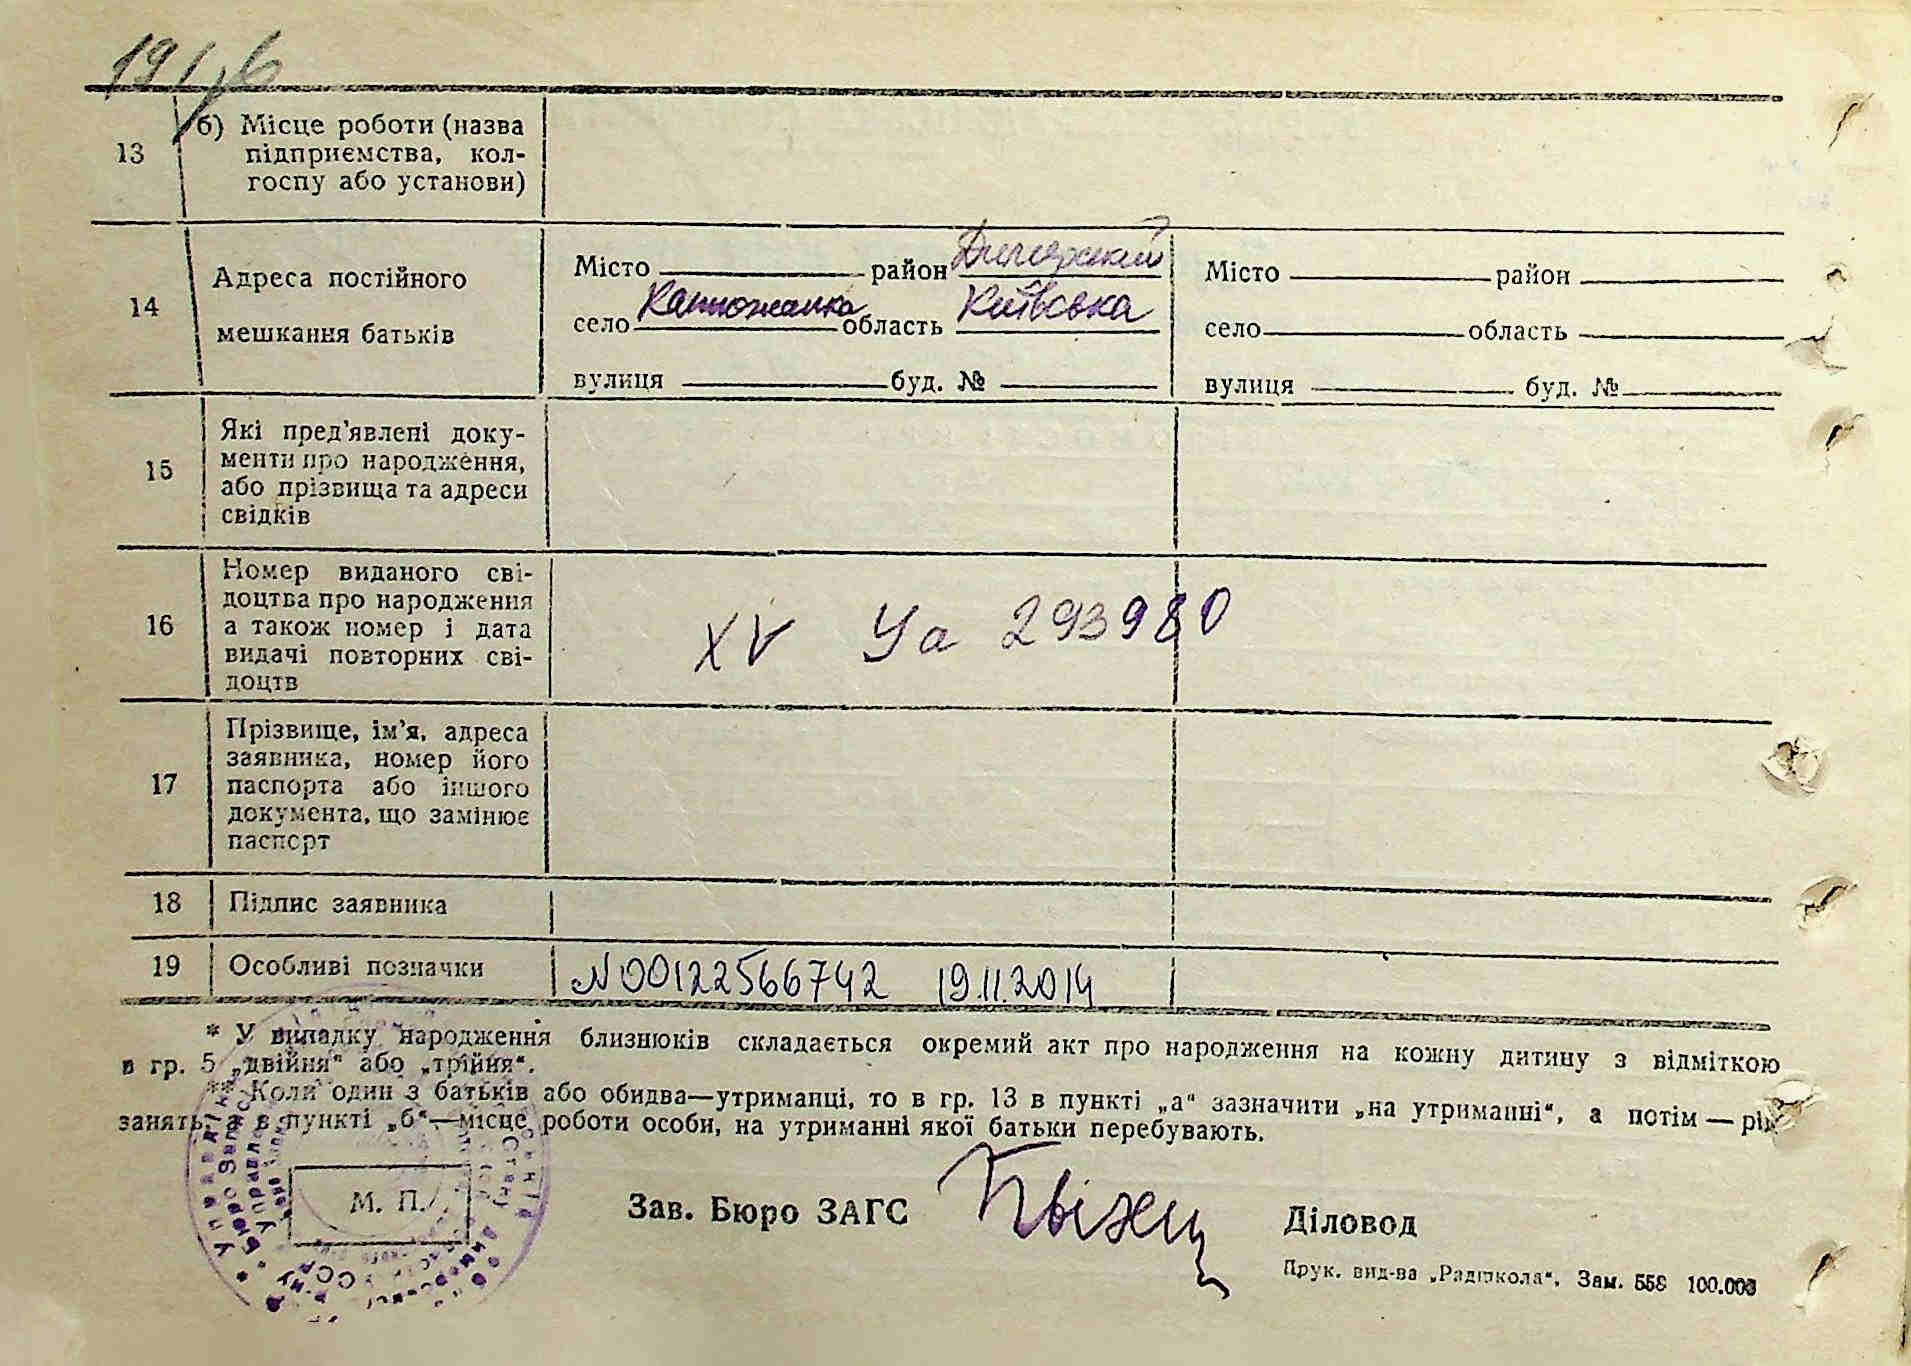 13
б) Місце роботи (назва
підприємства, кол-
госпу або установи)
14
Адреса постійного
мешкання батьків
Місто район Димерський
село область Київська
вулиця буд. №
Місто район
село область
вулиця буд. №
15
Які пред'явлені доку-
менти про народження,
або прізвища та адреси
свідків
16
Номер виданого сві-
доцтва про народження
а також номер і дата
видачі повторних сві-
доцтв
XV Уа 293980
17
Прізвище, ім'я, адреса
заявника, номер його
паспорта або іншого
документа, що замінює
паспорт
18
Підпис заявника
19
Особливі позначки
N00122566742 19.11.2014
* У випадку народження близнюків складається окремий акт про народження на кожну дитину з відміткою
в гр. 5 „двійня" або „трійня".
** Коли один з батьків або обидва—утриманці, то в гр. 13 в пункті „а" зазначити „на утриманні", а потім — рід
занять, а в пункті „б"—місце роботи особи, на утриманні якої батьки перебувають.
М. П.
Зав. Бюро ЗАГС
Діловод
Друк. вид-ва „Радшкола". Зам. 558 100.000